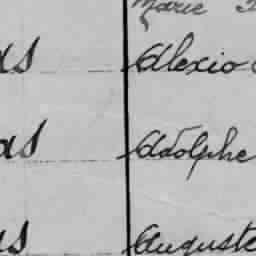 Marie
as Alexio
as Adolphe
as Auguste